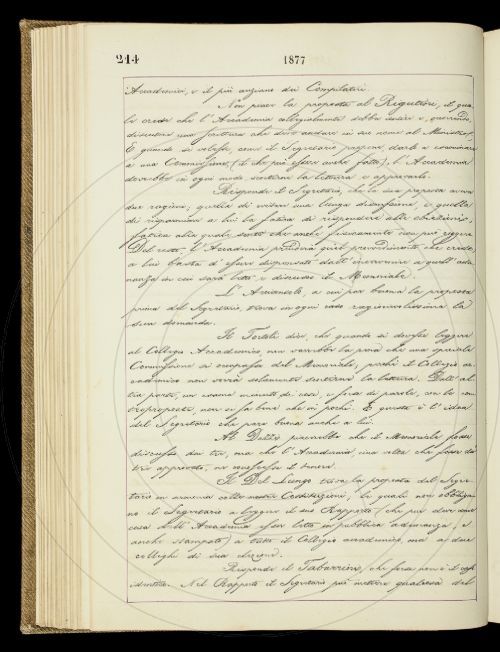 244
1877
Accademici, e il più anziano dei Compilatori.
Non piace la proposta al Rigutini, il qua-
le crede che l'Accademia collegialmente debba udire, e, occorrendo,
discutere una scrittura che deve andare in suo nome al Ministero.
E quando si volesse, come il Segretario propone, darla a esaminare
a una Commissione, (il che può essere anche fatto), l'Accademia
dovrebbe in ogni modo sentirne la lettura e approvarla.
Risponde il Segretario, che la sua proposta aveva
due ragioni; quella di evitare una lunga discussione, e quella
di risparmiare a lui la fatica di rispondere alle obiezioni,
fatica alla quale sente che anche fisicamente non può reggere.
Del resto l'Accademia prenderà quel provvedimento che crede;
a lui basta d'essere dispensato dall'intervenire a quell'adu-
nanza in cui sarà letto e discusso il Memoriale.
L'Arcangeli, a cui par buona la proposta
prima del Segretario, trova in ogni caso ragionevolissima la
sua domanda.
Il Tortoli dice, che quando si dovesse leggere
al Collegio Accademico, non varrebbe la pena che una speciale
Commissione si occupasse del Memoriale, poiché il Collegio ac-
cademico non vorrà solamente sentirne la lettura. Dall'al-
tra parte, un esame minuto di cose, e forse di parole, con le con-
troproposte, non si fa bene che in pochi. E questa è l'idea
del Segretario che pare buona anche a lui.
Al Dazzi piacerebbe che il Memoriale fosse
discusso dai tre, ma che l'Accademia, una volta che fosse da'
tre approvato, ne conoscesse il tenore.
Il Del Lungo trova la proposta del Segre-
tario in armonia colle nostre Costituzioni, le quali non obbliga-
no il Segretario a leggere il suo Rapporto (che pur deve come
cosa dell'Accademia esser letto in pubblica adunanza, e
anche stampato) a tutto il Collegio accademico, ma a due
colleghi di sua elezione.
Risponde il Tabarrini, che forse non è il caso
identico. Nel Rapporto il Segretario può mettere qualcosa del